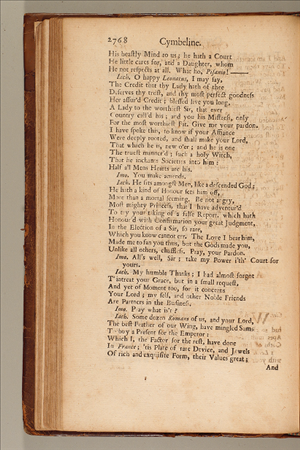 2768 Cymbeline.
His beastly Mind to us; he hath a Court
He little cares for, and a Daughter, whom
He not respects at all. What ho, Pisanio! ——
Iach. O happy Leonatus, I may say,
The Credit that thy Lady hath of thee
Deserves thy trust, and thy most perfect goodness
Her assur'd Credit; blessed live you long,
A Lady to the worthiest Sir, that ever
Country call'd his; and you his Mistress, only
For the most worthiest fit. Give me your pardon.
I have spoke this, to know if your Affiance
Were deeply rooted, and shall make your Lord,
That which he is, new o'er; and he is one
The truest manner'd; such a holy Witch,
That he inchants Societies into him:
Half all Mens Hearts are his.
Imo. You make amends.
Iach. He sits amongst Men, like a descended God;
He hath a kind of Honour sets him off,
More than a mortal seeming. Be not angry,
Most mighty Princess, that I have adventur'd
To try your taking of a false Report, which hath
Honour'd with Confirmation your great Judgment,
In the Election of a Sir, so rare,
Which you know cannot err. The Love I bear him,
Made me to fan you thus, but the Gods made you,
Unlike all others, chaffless. Pray, your Pardon.
Imo. All's well, Sir; take my Power i'th' Court for
yours.
Iach. My humble Thanks; I had almost forgot
T'intreat your Grace, but in a small request,
And yet of Moment too, for it concerns
Your Lord; my self, and other Noble Friends
Are Partners in the Business.
Imo. Pray what is't?
Iach. Some dozen Romans of us, and your Lord,
The best Feather of our Wing, have mingled Sums
To buy a Present for the Emperor:
Which I, the Factor for the rest, have done
In France; 'tis Plate of rare Device, and Jewels
Of rich and exquisite Form, their Values great;
And